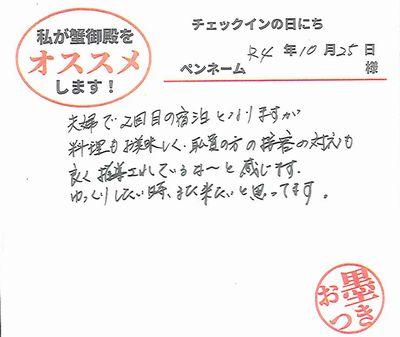 私が蟹御殿を
オススメ
します！
チェックインの日にち
R4 年 10 月 25 日
ペンネーム 様
夫婦で2回目の宿泊となりますが
料理も美味しく、職員の方の接客の対応も
良く指導されているな〜と感じます。
ゆっくりしたい時、また来たいと思ってます。
お墨つき